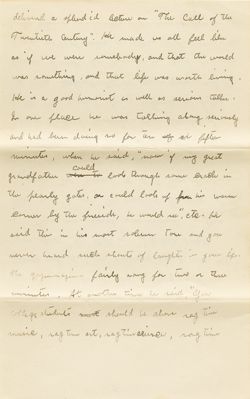 delivered a splendid lecture on "The Call of the
Twentieth Century". He made us all feel like
as if we were somebody, and that the world
was something, and that life was worth living.
He is a good humorist as well as serious talker.
In one place he was talking along seriously
and had been doing so for ten or fifteen
minutes, when he said, "now if my great
grandfather could look through some crack in
the pearly gates, or could look from his warm
corner by the fireside, he would see," etc. He
said this in his most solemn tone and you
never heard such shouts of laughter in your life.
The fairly rang for two or three
minutes. At another time he said, "You
college students must should be above rag time
music, rag time art, rag time, rag time